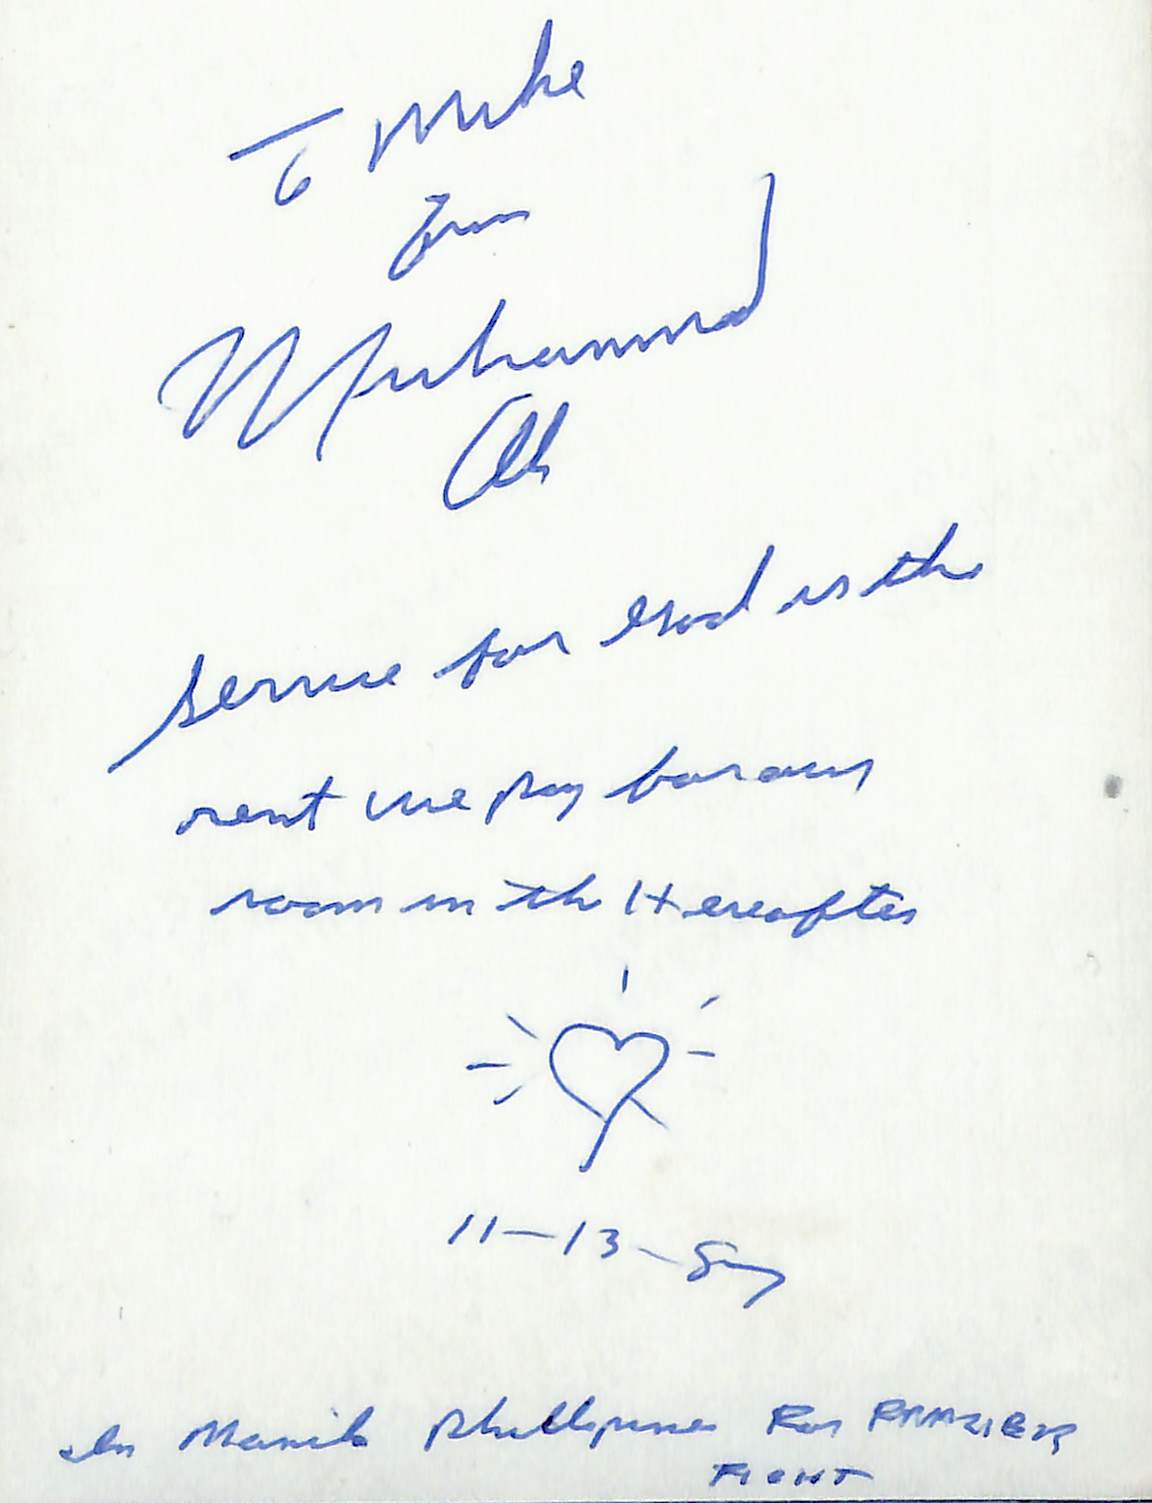 To Mike
From
Muhammad
Ali
Service for God is the
rent we pay for our
room in the Hereafter
11-13-
In Manila Phillipines For FRAZIER
FIGHT